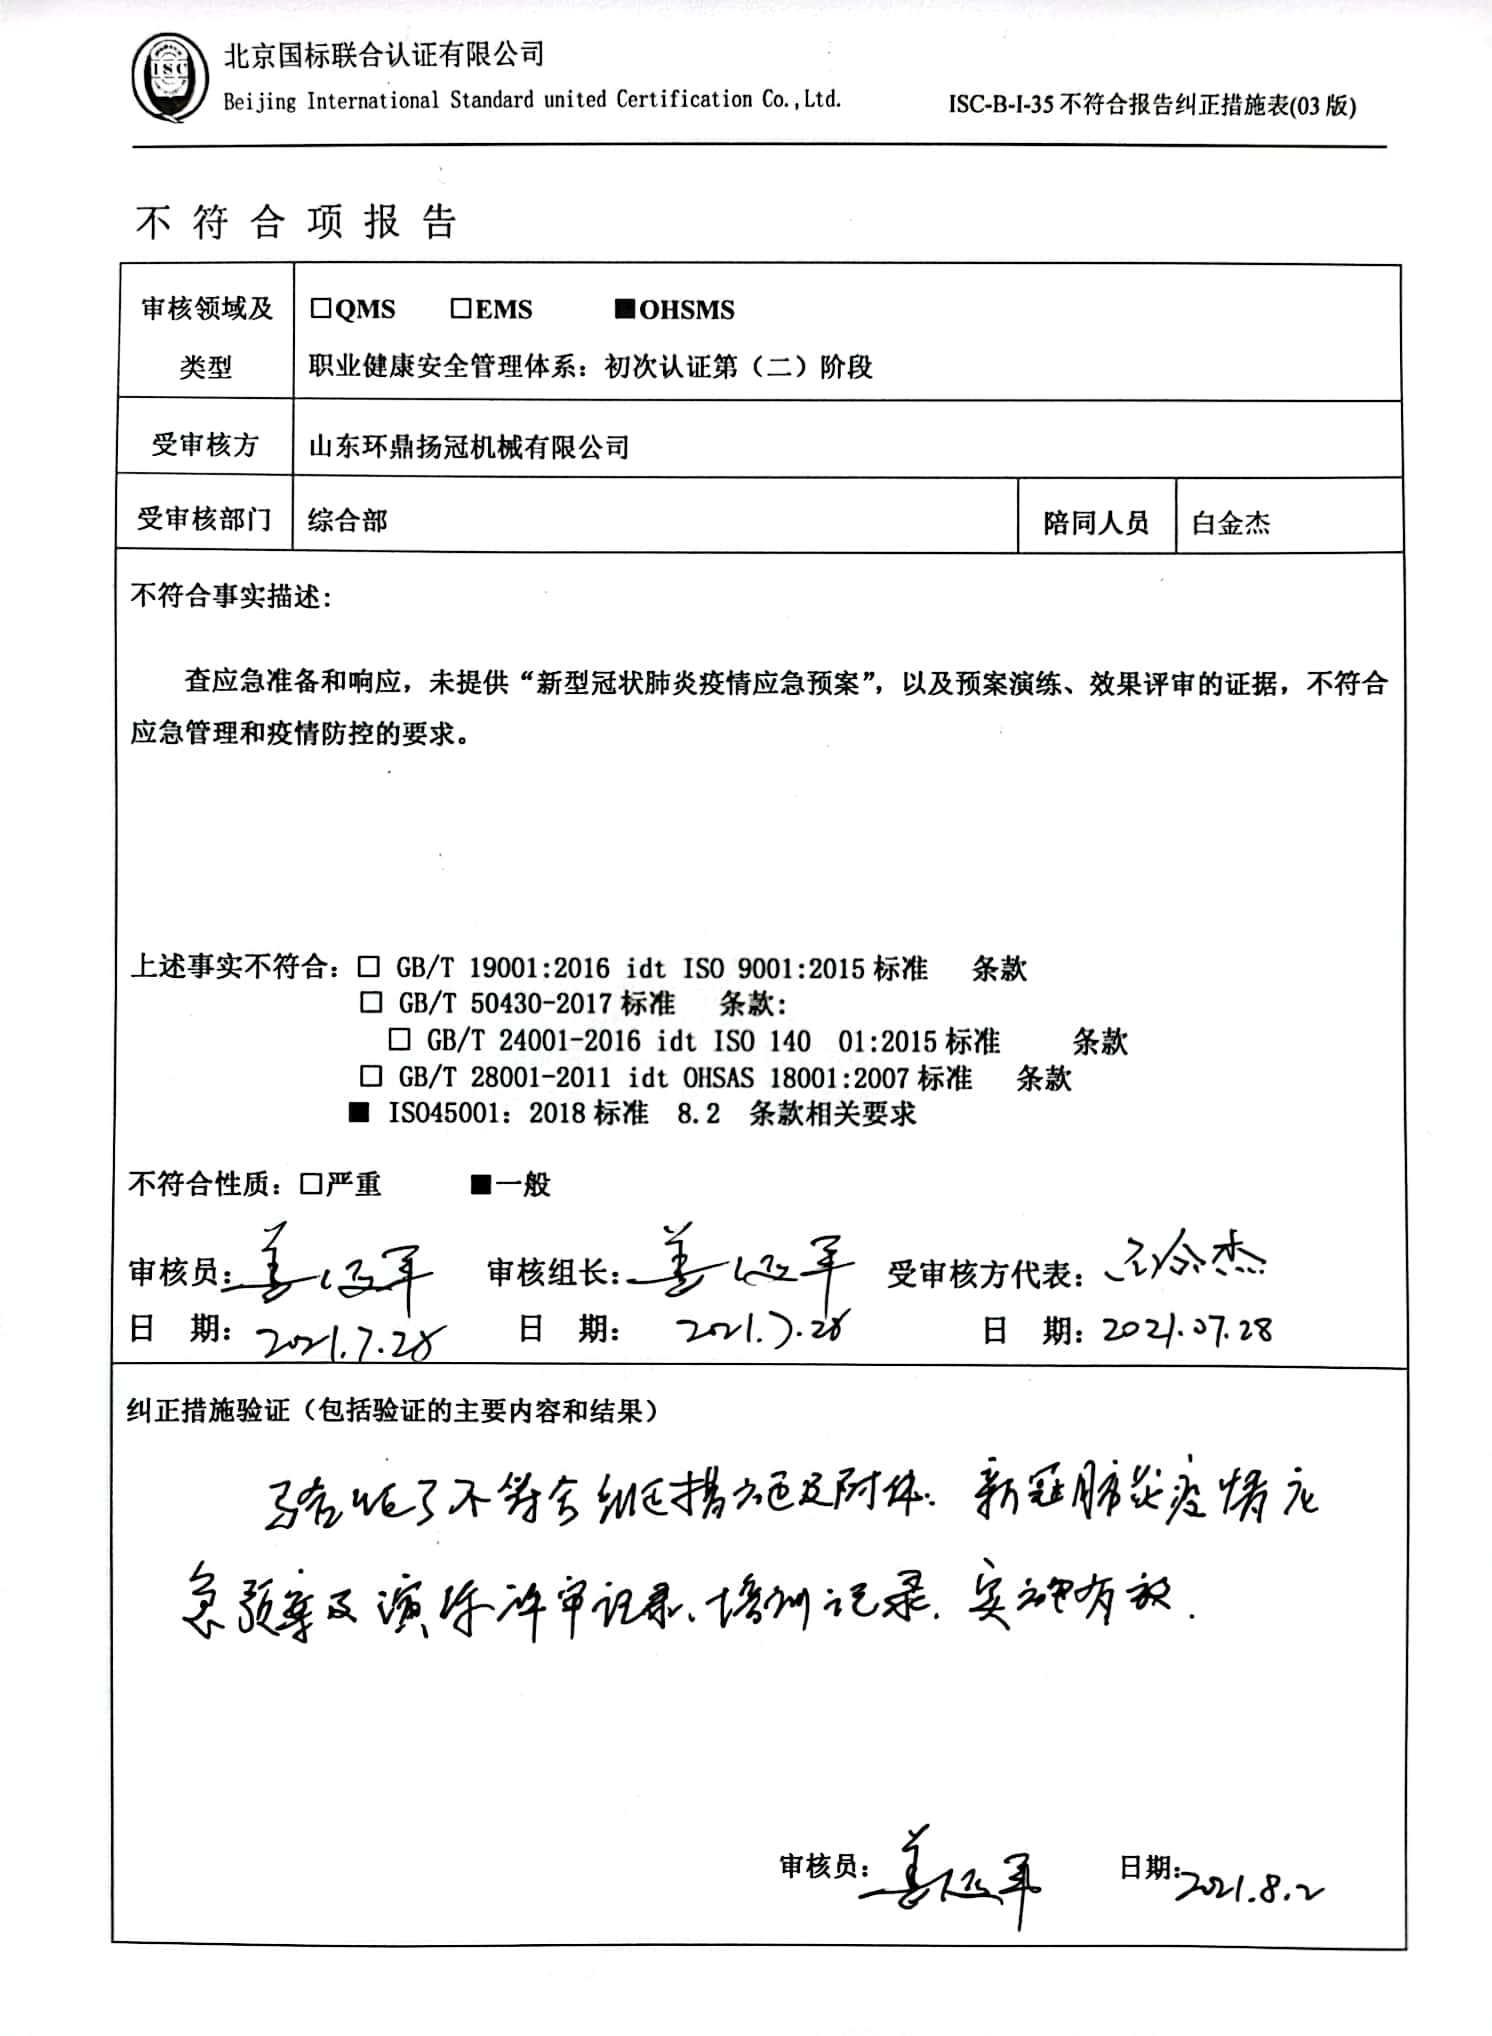 ISC
北京国标联合认证有限公司
Beijing International Standard united Certification Co.,Ltd.
ISC-B-I-35 不符合报告纠正措施表(03 版)
不符合项报告
审核领域及类型
□QMS □EMS ■OHSMS
职业健康安全管理体系：初次认证第（二）阶段
受审核方 山东环鼎扬冠机械有限公司
受审核部门 综合部 陪同人员 白金杰
不符合事实描述：
查应急准备和响应，未提供“新型冠状肺炎疫情应急预案”，以及预案演练、效果评审的证据，不符合
应急管理和疫情防控的要求。
上述事实不符合：□ GB/T 19001:2016 idt ISO 9001:2015 标准 条款
□ GB/T 50430-2017 标准 条款：
□ GB/T 24001-2016 idt ISO 140 01:2015 标准 条款
□ GB/T 28001-2011 idt OHSAS 18001:2007 标准 条款
■ ISO45001：2018 标准 8.2 条款相关要求
不符合性质：□严重 ■一般
审核员： 审核组长： 受审核方代表：
日 期：2021.7.28 日 期：2021.7.28 日 期：2021.07.28
纠正措施验证（包括验证的主要内容和结果）
验证了不符合纠正措施及附件. 新冠肺炎疫情应
急预案及演练评审记录、培训记录. 实施有效.
审核员： 日期：2021.8.2